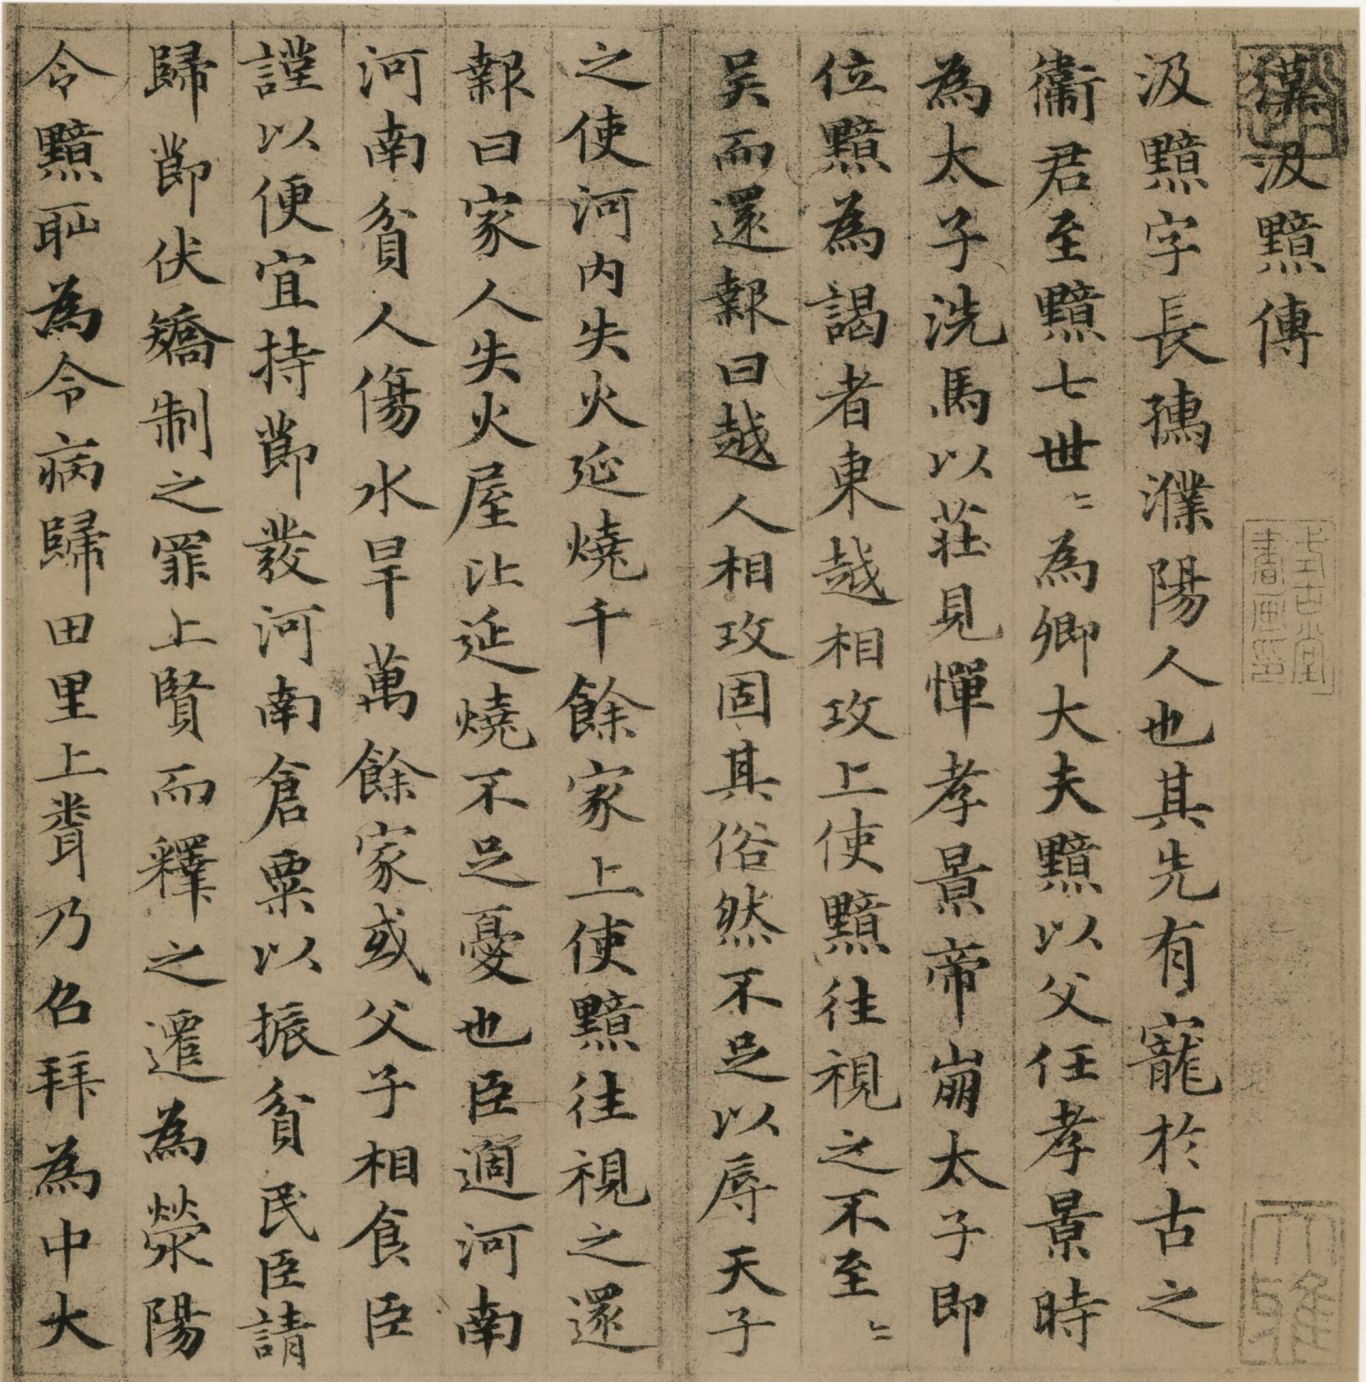 漢汲黯傳
汲黯字長孺濮陽人也其先有寵於古之
衞君至黯七世〻為卿大夫黯以父任孝景時
為太子洗馬以莊見憚孝景帝崩太子即
位黯為謁者東越相攻上使黯往視之不至〻
吴而還報曰越人相攻固其俗然不足以辱天子
之使河内失火延燒千餘家上使黯往視之還
報曰家人失火屋比延燒不足憂也臣適河南
河南貧人傷水旱萬餘家或父子相食臣
謹以便宜持節發河南倉粟以振貧民臣請
歸節伏矯制之罪上賢而釋之遷為滎陽
令黯恥為令病歸田里上聞乃召拜為中大
式古堂書画印